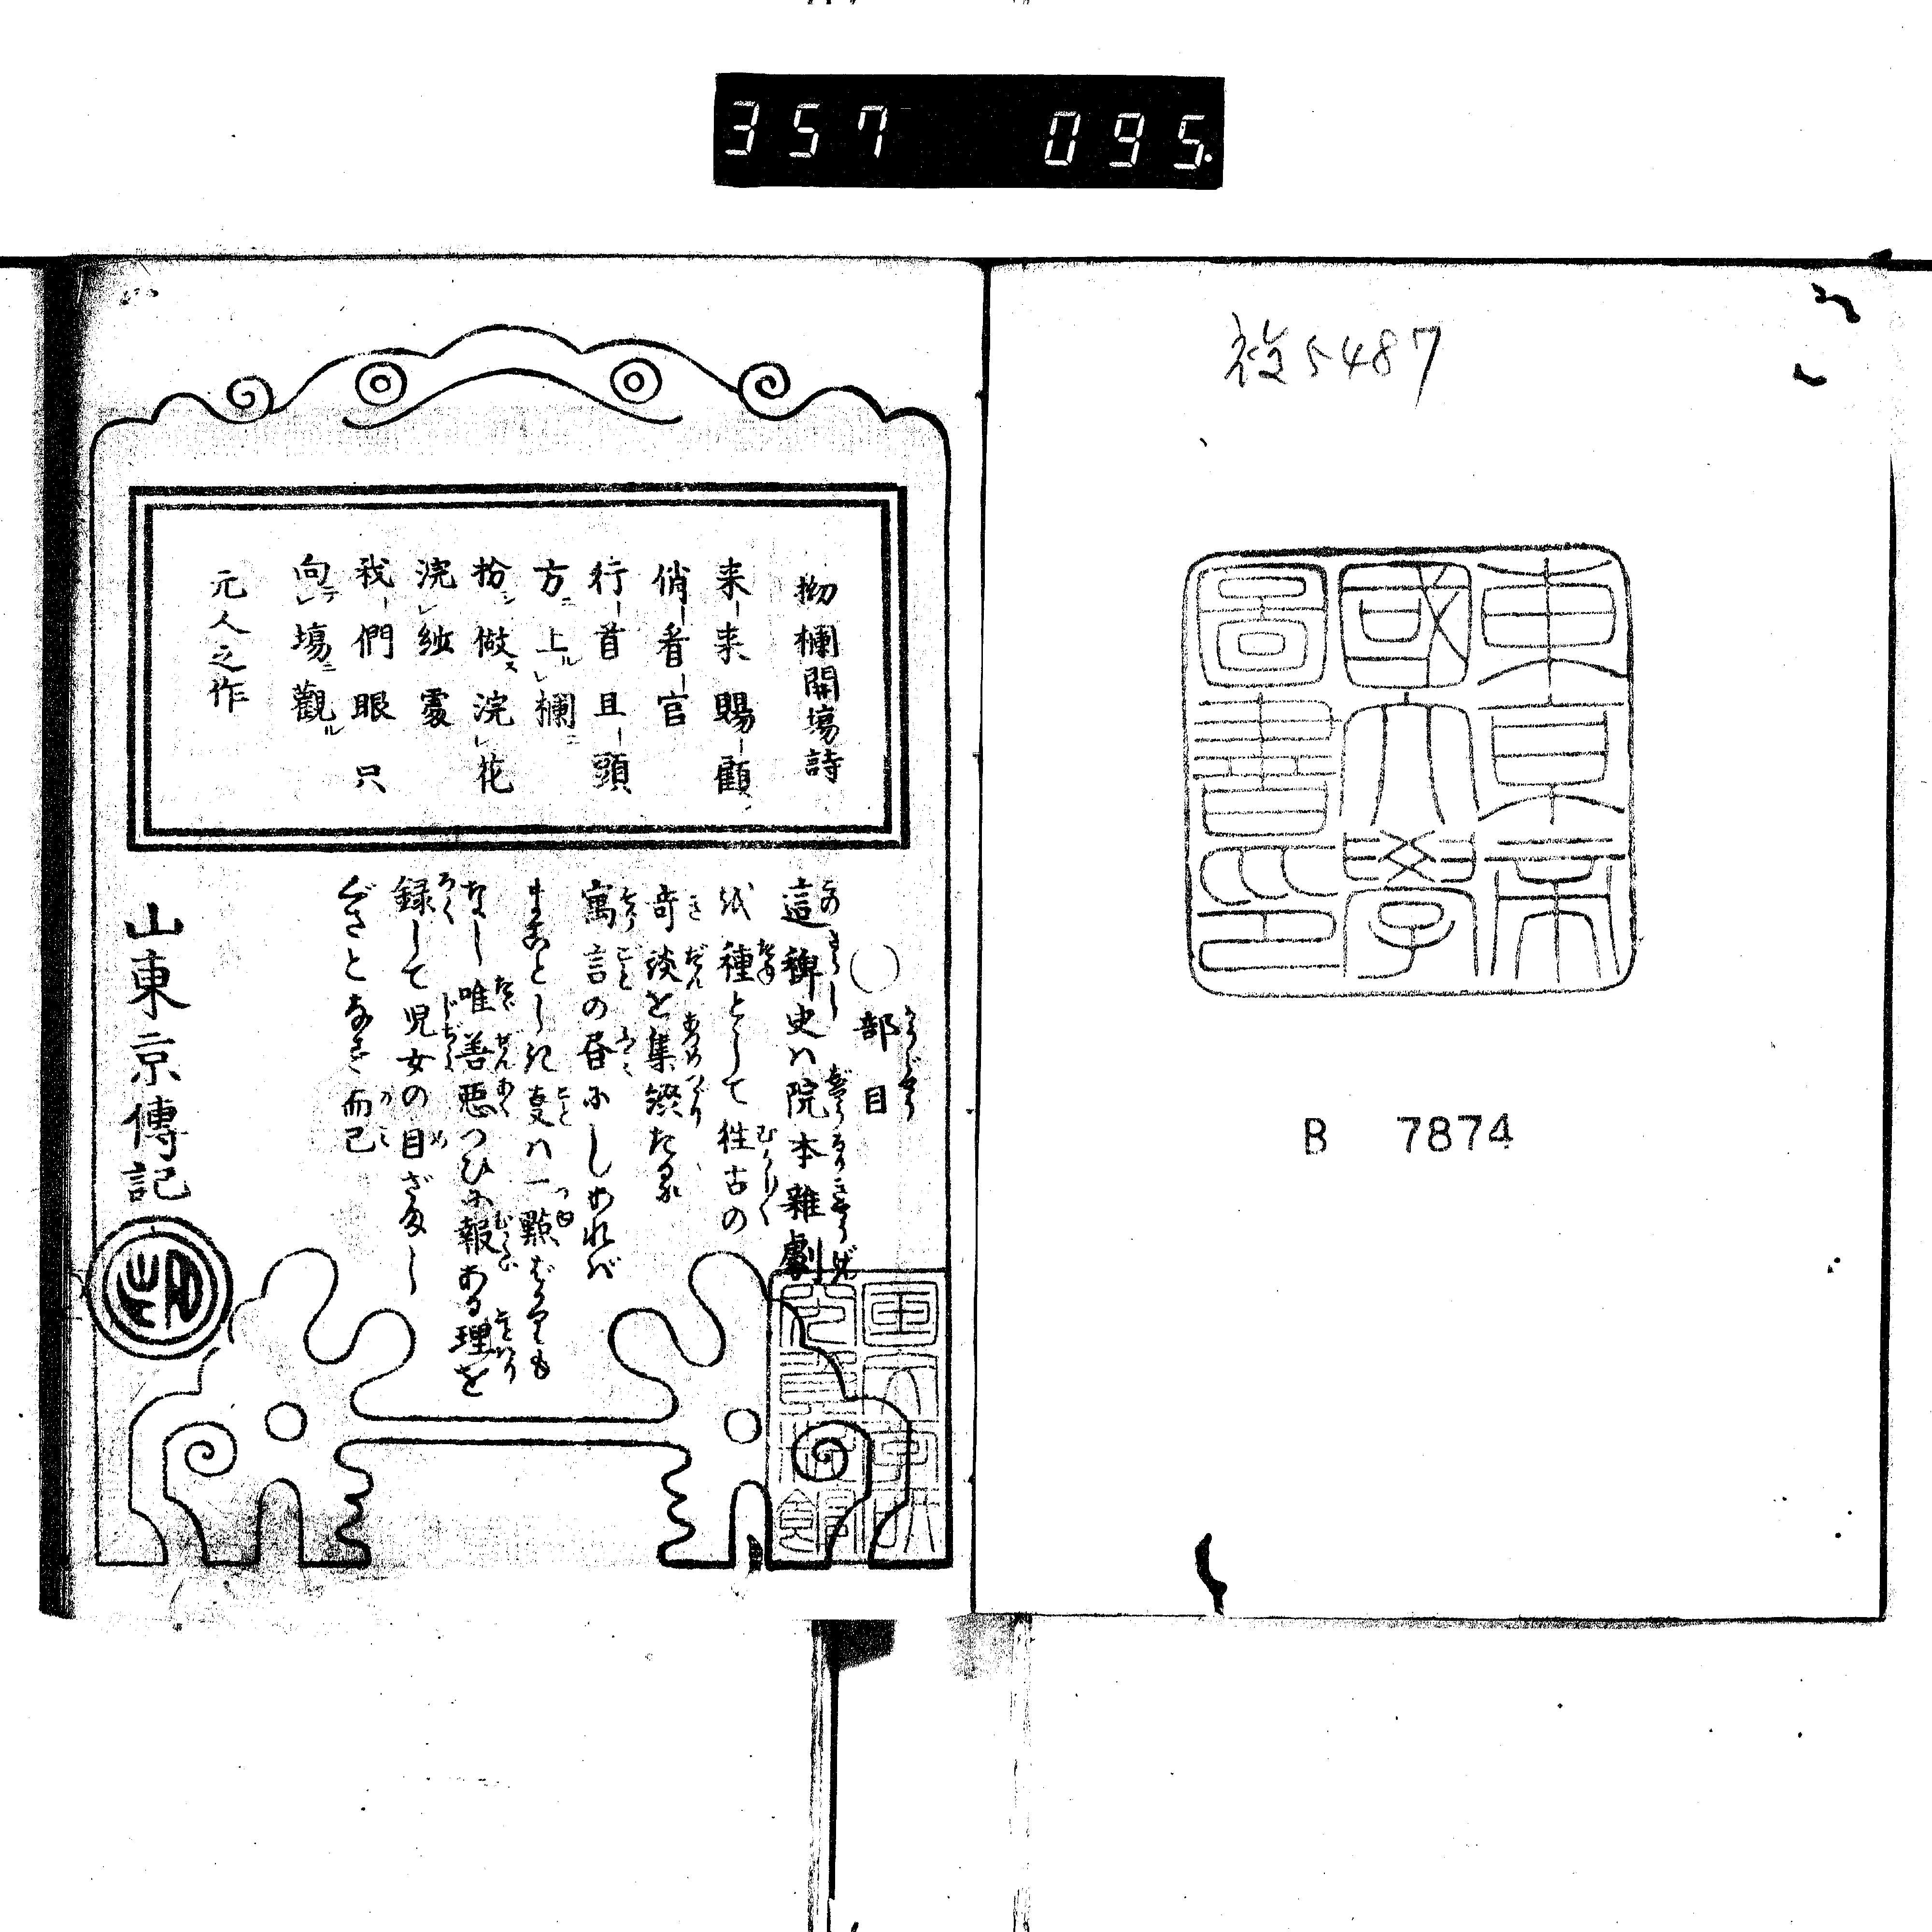 357 095.
複5487
東京帝
國大學
圖書印
B 7874
拗欄開場詩
来来賜顧
俏看官
行首且頭
方上欄
扮做浣花
浣紗處
我們眼只
向場觀
元人之作
部目
這稗史ハ院本雑劇
を種として往古の
奇談を集綴たる
寓言の昏にしあれば
まことしき支ハ一點ばかりも
なし唯善悪つひに報ある理を
録して児女の目ざまし
ぐさとなさ而已
山東京傳記